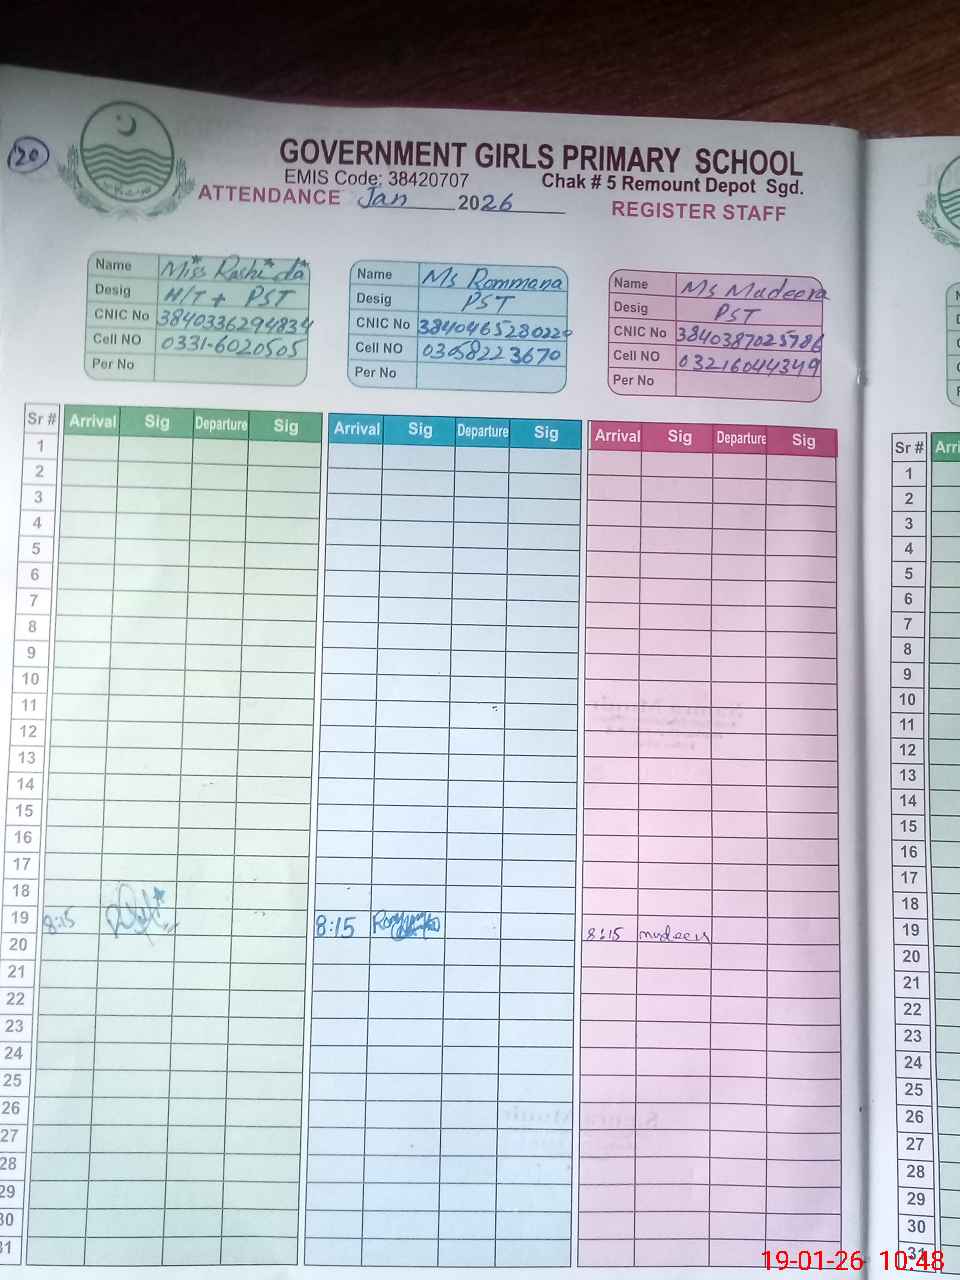 120
GOVERNMENT GIRLS PRIMARY SCHOOL
EMIS Code: 38420707 Chak # 5 Remount Depot Sgd.
ATTENDANCE Jan 2026 REGISTER STAFF
Name Miss Rashida
Desig H/T + PST
CNIC No 3840336294834
Cell NO 0331-6020505
Per No
Name Ms Rommana
Desig PST
CNIC No 3840465280220
Cell NO 03058223670
Per No
Name Ms Mudeera
Desig PST
CNIC No 3840387025786
Cell NO 03216044349
Per No
Sr # Arrival Sig Departure Sig Arrival Sig Departure Sig Arrival Sig Departure Sig
1
2
3
4
5
6
7
8
9
10
11
12
13
14
15
16
17
18
19 8:15 8:15 8:15
20
21
22
23
24
25
26
27
28
29
30
31
Sr # Arri
1
2
3
4
5
6
7
8
9
10
11
12
13
14
15
16
17
18
19
20
21
22
23
24
25
26
27
28
29
30
31
19-01-26 10:48